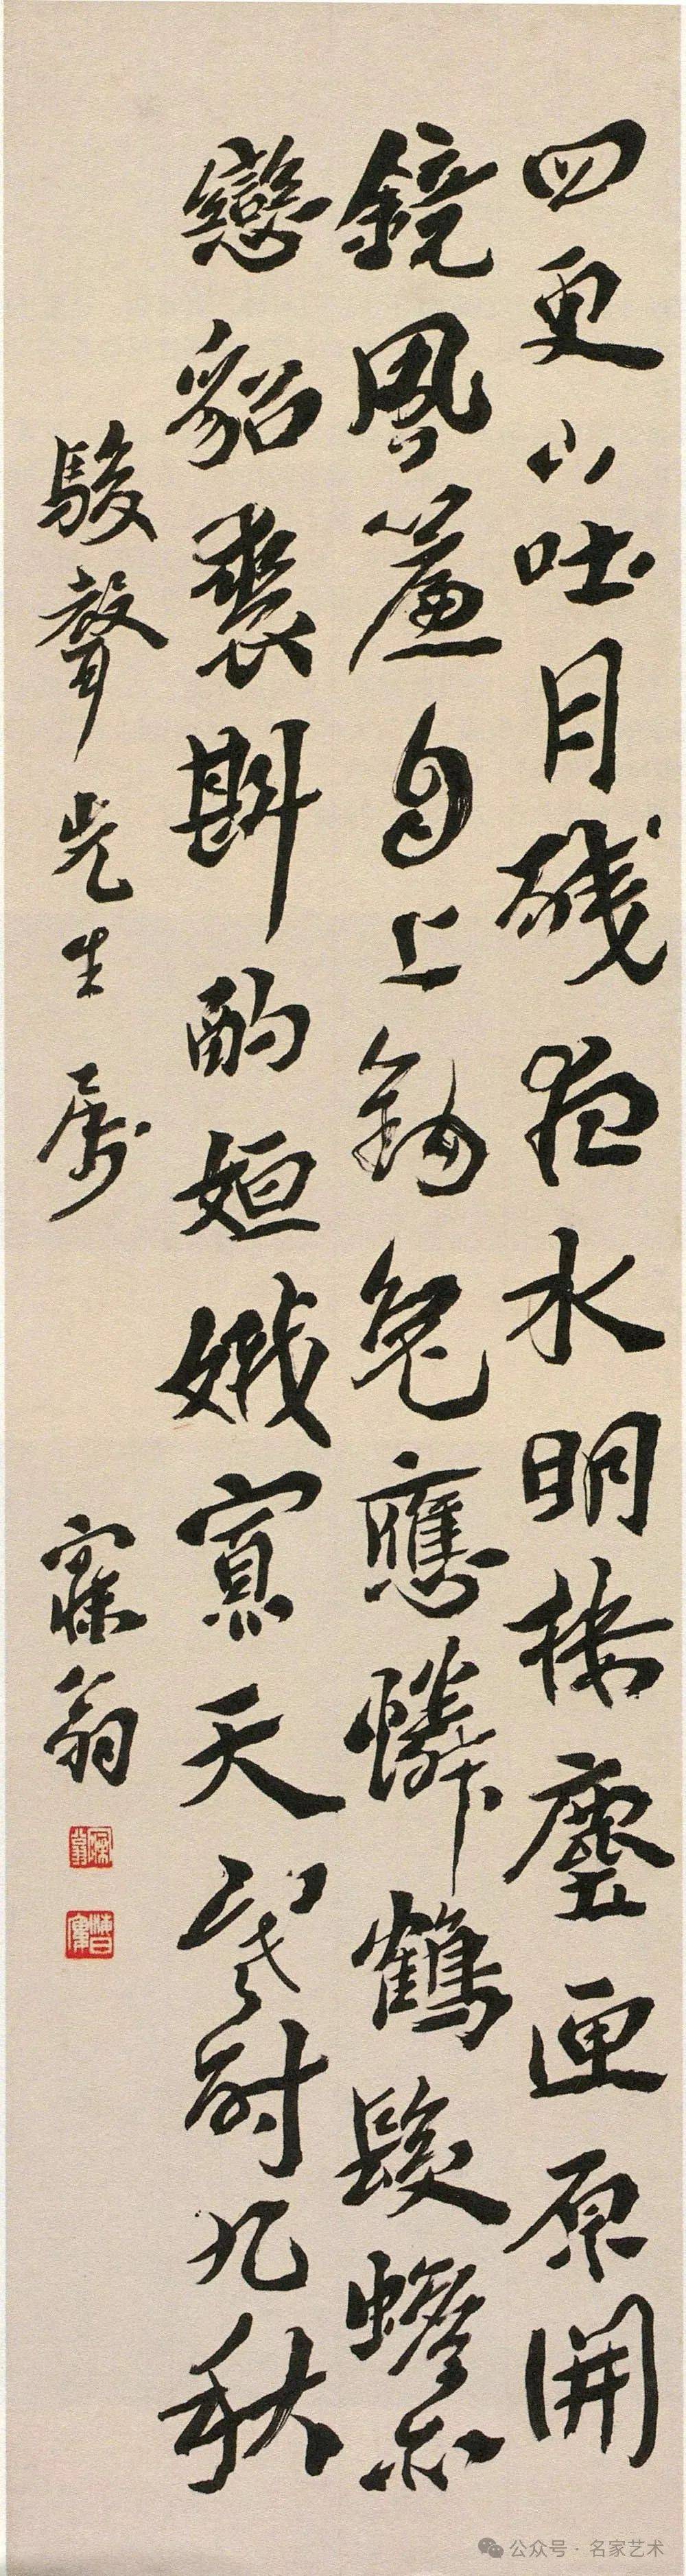 四更山吐月殘夜水明樓塵匣原開
鏡風簾自上鉤兔應憐鶴髮蟾亦
戀貂裘斟酌姮娥寡天寒耐九秋
駿聲先生屬 寐翁
寐翁
公众号 · 名家艺术